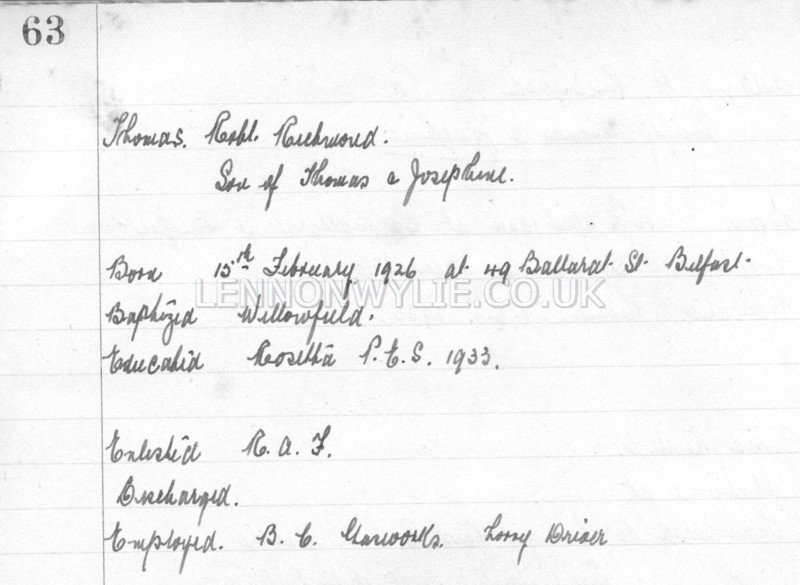 63
Thomas. Robt. Richmond.
Son of Thomas & Josephine.
Born 15th February 1926 at 49 Ballarat St. Belfast.
LENNONWYLIE.CO.UK
Baptized Willowfield.
Educated Rosetta P.E.S. 1933.
Enlisted R.A.F.
Discharged.
Employed. B. C. Gasworks. Lorry Driver